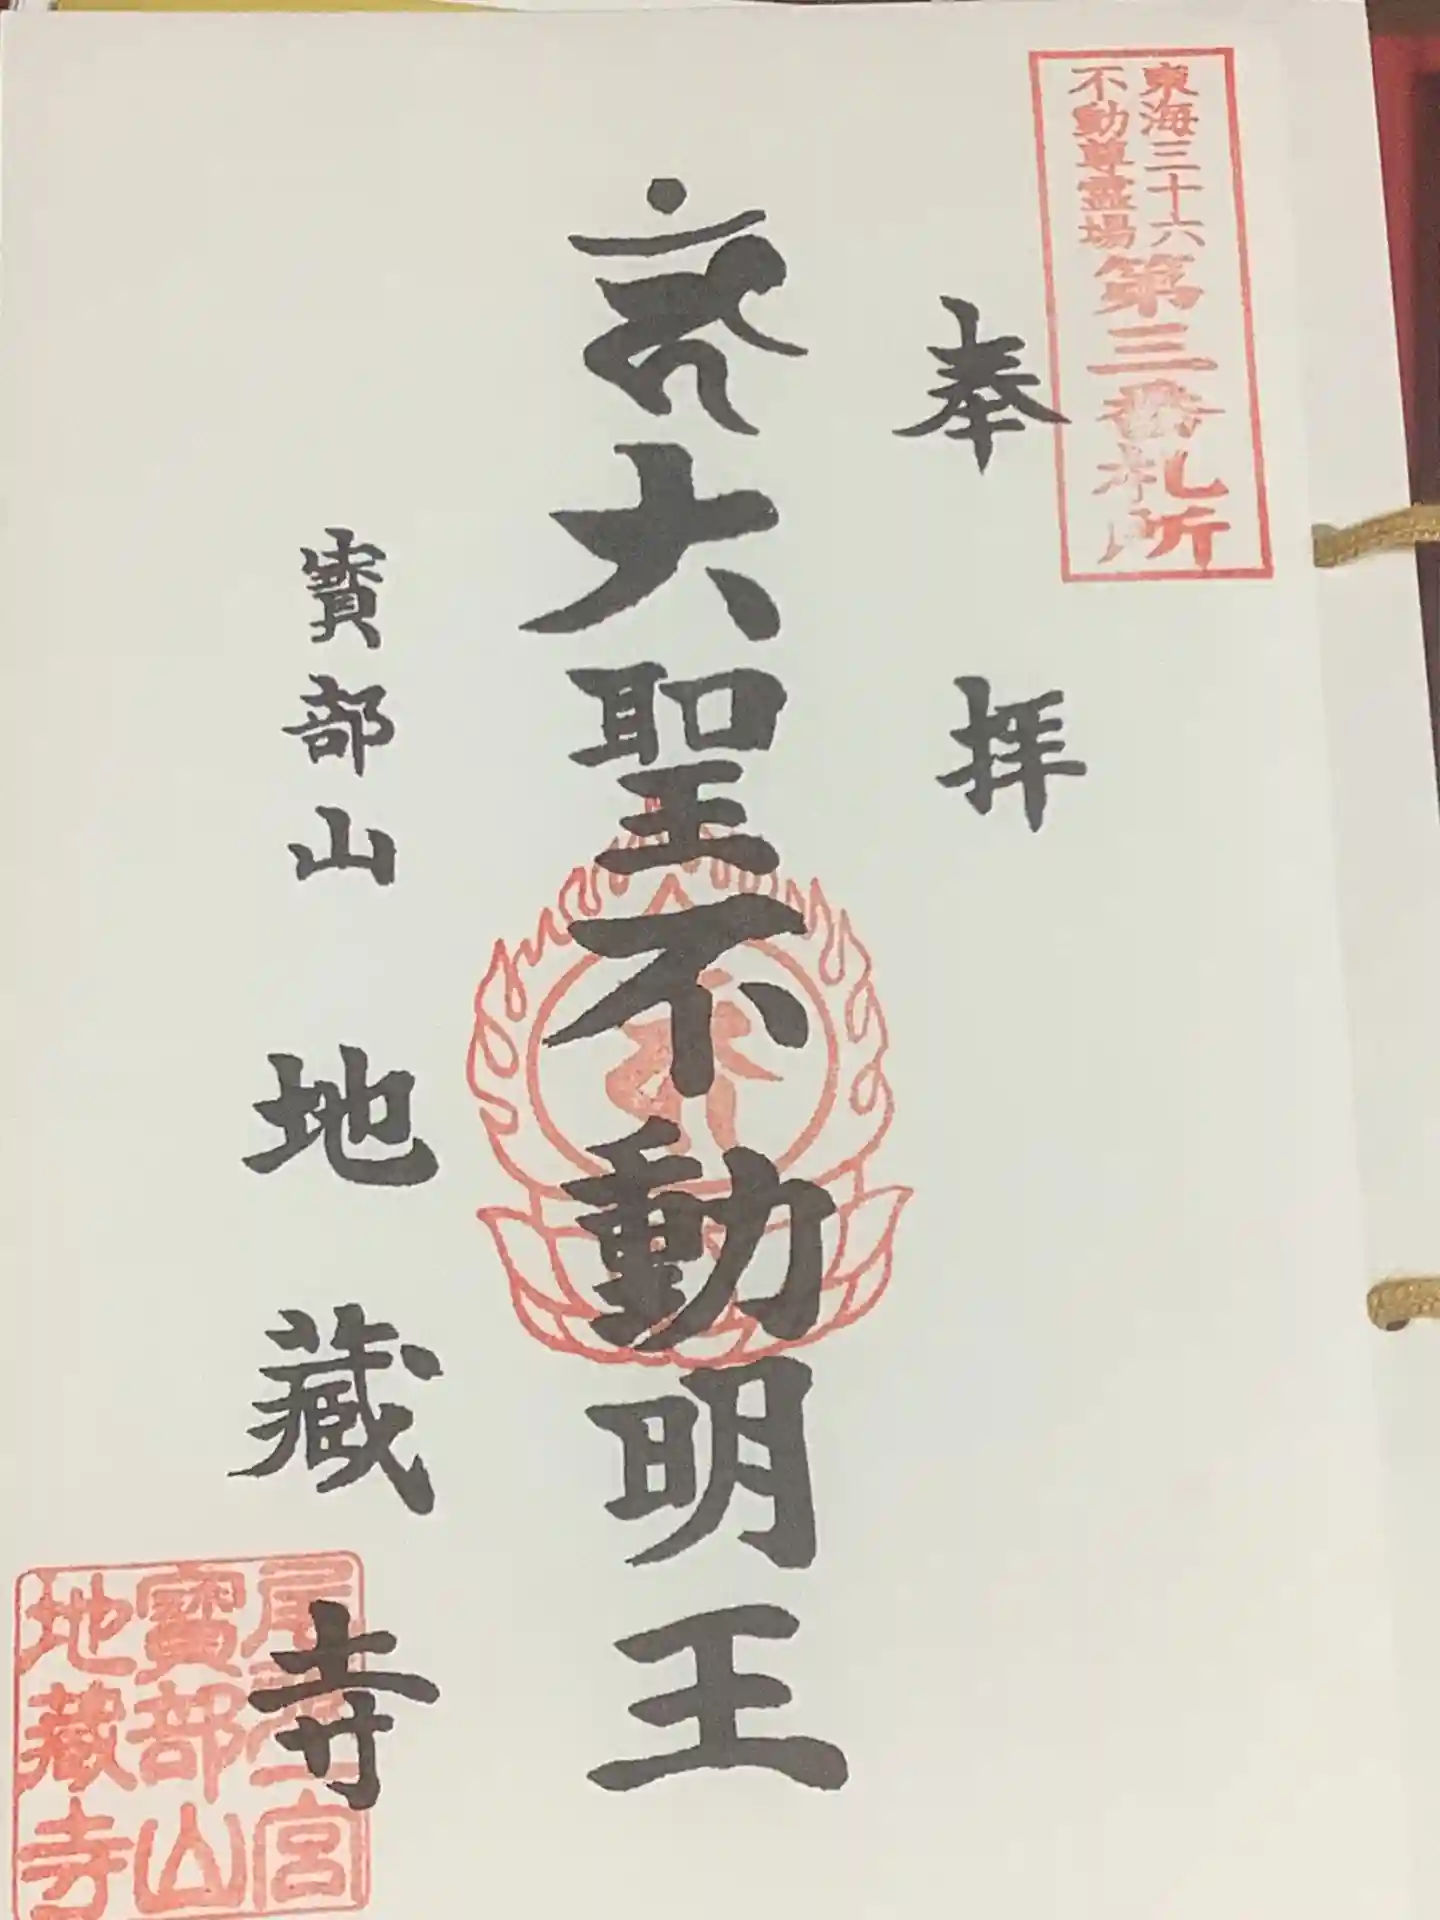 東海三十六
不動尊霊場
第三番札所
奉拝
大聖不動明王
寳部山
地藏寺
尾張一宮
寶部山
地藏寺